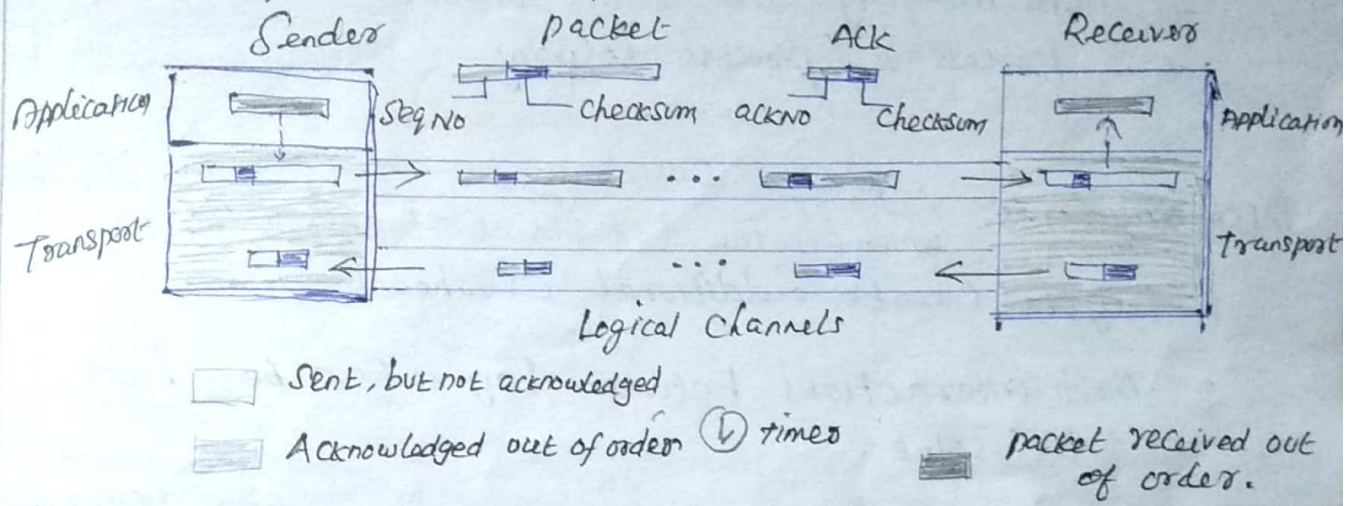 Sender packet Ack Receiver
Application Seq No checksum ackNo checksum Application
Transport Transport
Logical Channels
Sent, but not acknowledged
Acknowledged out of order timer
packet received out
of order.